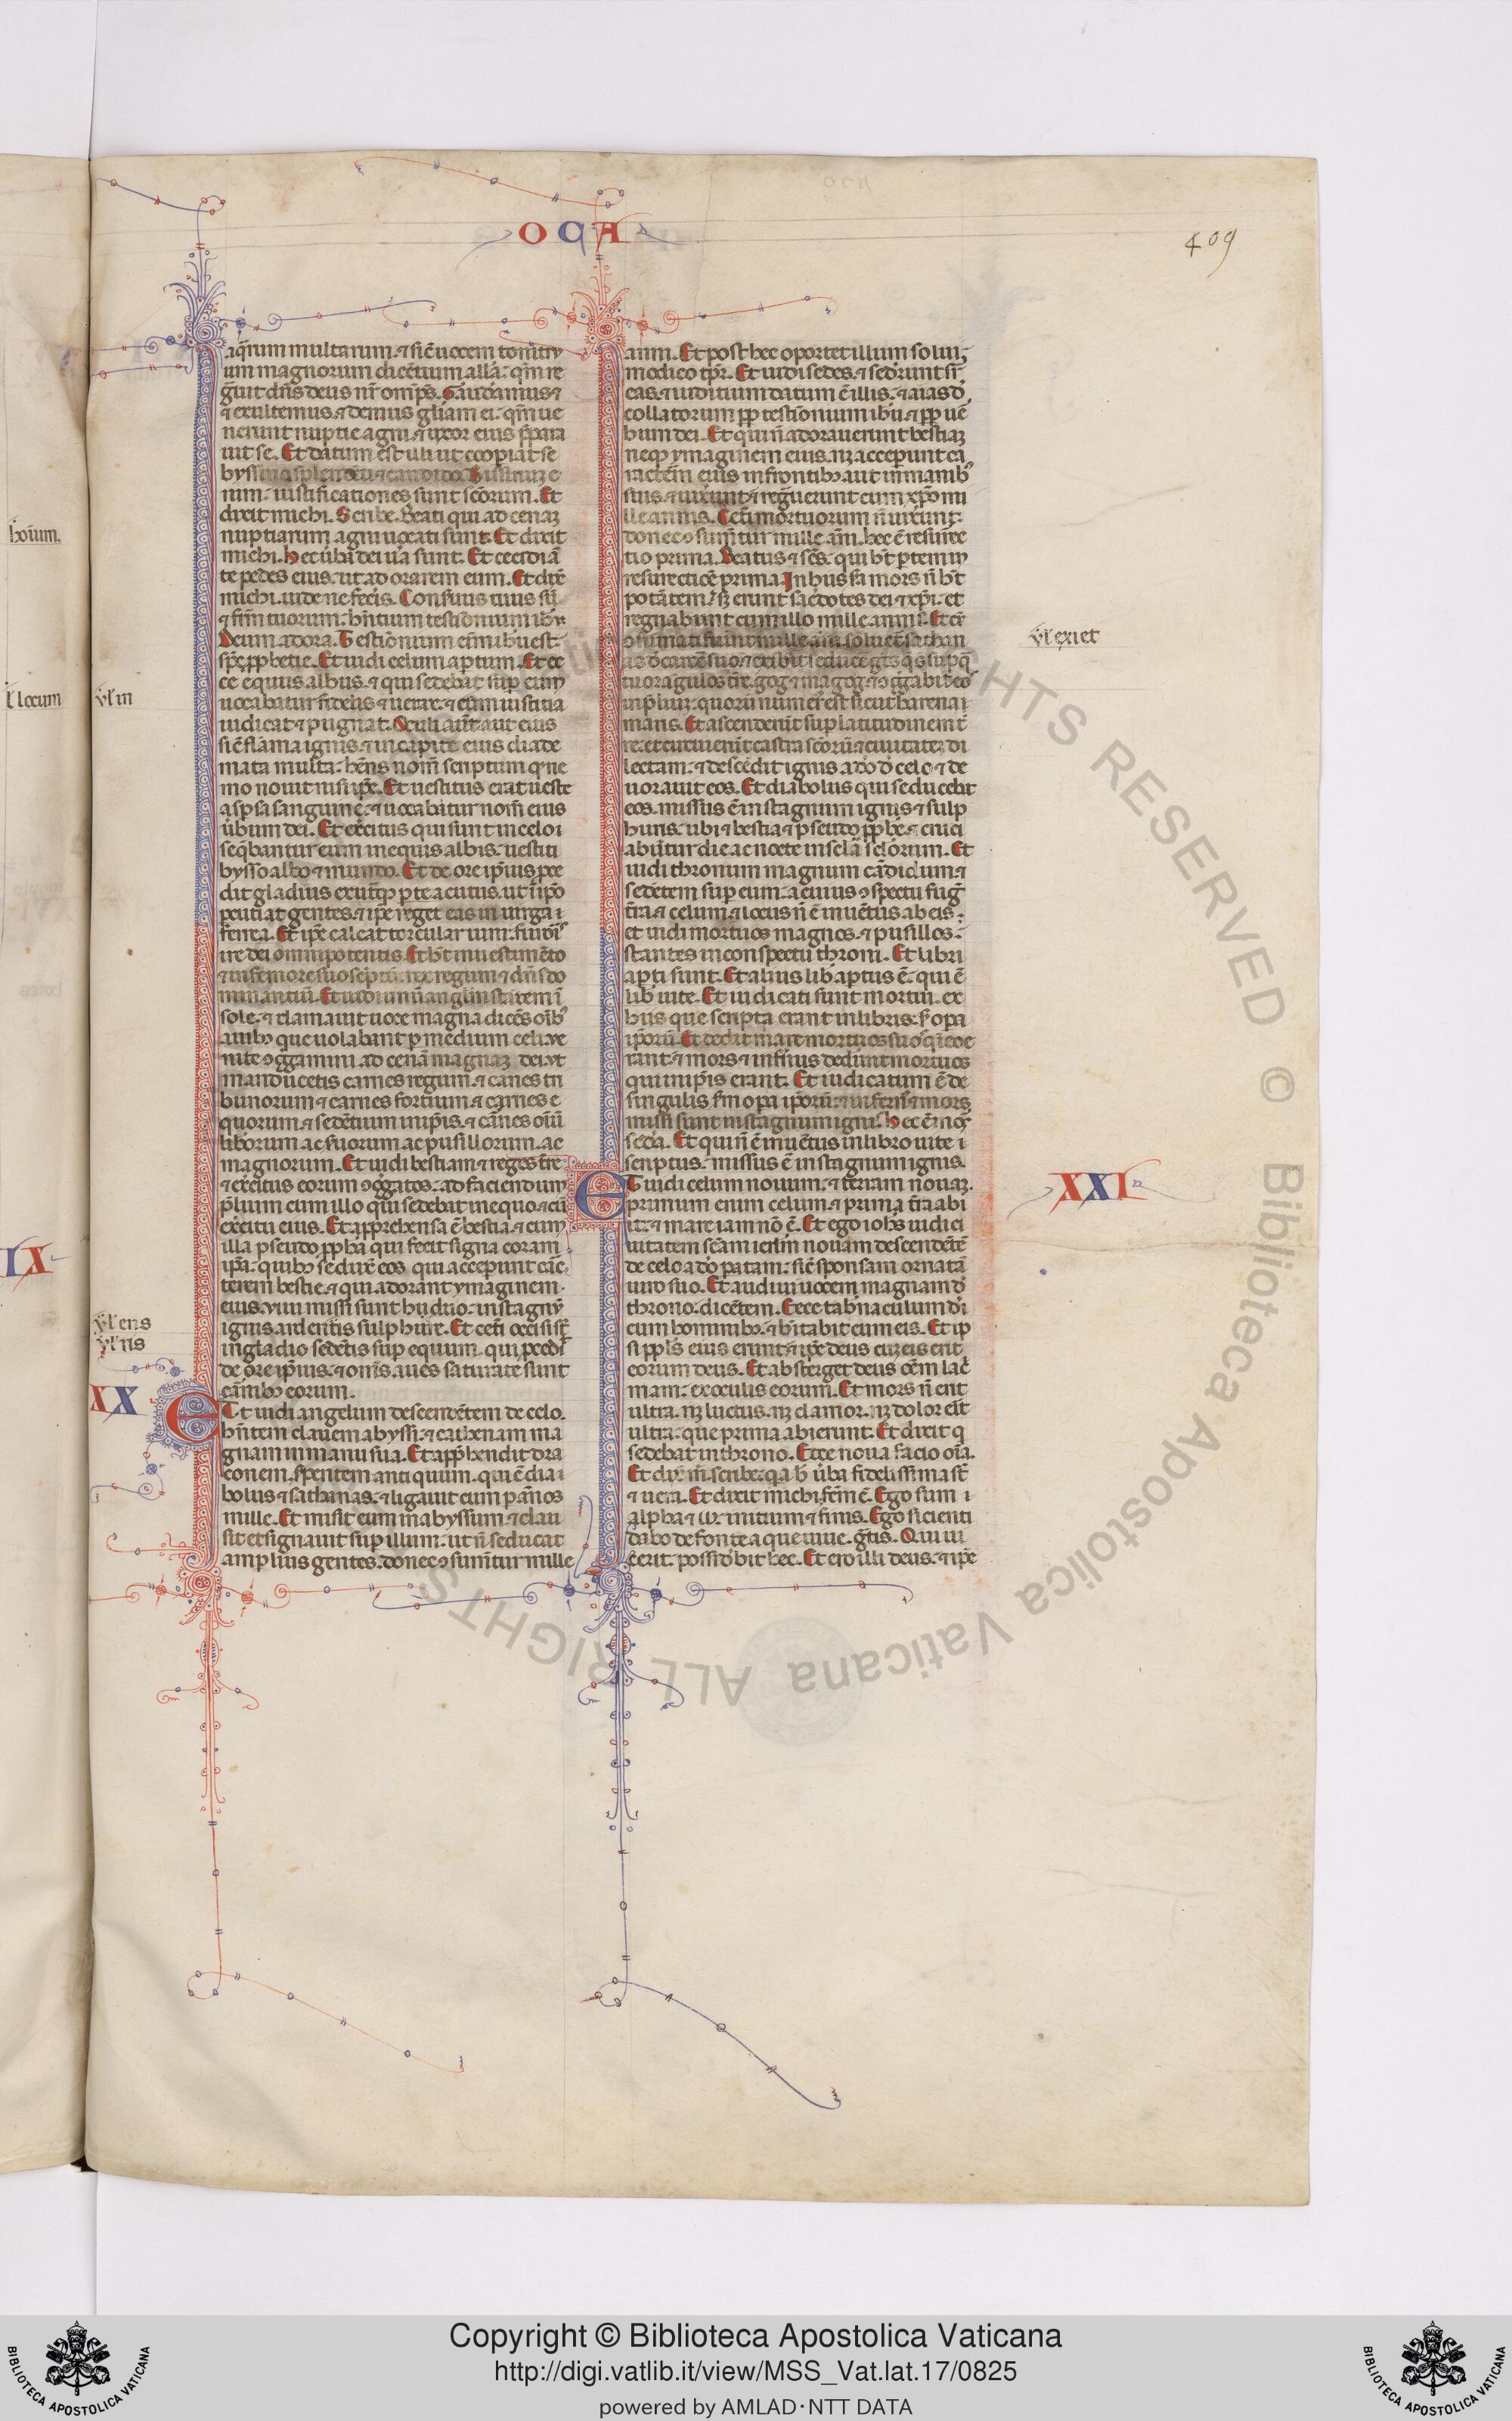 OCA
409
aq̄rum multarum. ⁊ sic̄ uocem tonitru
um magnorum dicētium alla. qm̄ re
gnauit dn̄s deus nr̄ omīps. Gaudeamus ⁊
⁊ exultemus. ⁊ demus gl̄iam ei. qm̄ ue
nerunt nuptie agni. ⁊ uxor eius p̄para
uit se. Et datum est illi ut coopiat se
byssino splendenti ⁊ candido.
nim. iustificationes sunt sc̄orum. Et
dixit michi. Scribe. Beati qui ad cenaꝫ
nuptiarum agni uocati sunt. Et dixit
michi. Hec ūba dei ūa sunt. Et cecidi ā
te pedes eius. ut adorarem eum. Et dix̄
michi. uide ne fecīs. Conseruus tuus sū
⁊ frm̄ tuorum. hn̄tium testimonium ihu.
Deum adora. Testimonium enim ihu est
sps̄ pphetie. Et uidi celum aptum. Et ec
ce equus albus. ⁊ qui sedebat sup eum
uocabatur fidelis ⁊ uerax. ⁊ cum iustitia
iudicat ⁊ pugnat. Oculi aūt eius
sic̄ flāma ignis. ⁊ in capite eius diade
mata multa. hēns nom̄ scriptum qd̄ ne
mo nouit nisi ipē. Et uestitus erat ueste
aspsa sanguine. ⁊ uocabatur nom̄ eius
ūbum dei. Et exercitus qui sunt in celo
seq̄bantur eum in equis albis. uestiti
bysso albo ⁊ mundo. Et de ore ipīus pce
dit gladius ex utq̄ pte acutus. ut ī ipō
pcutiat gentes. ⁊ ipē reget eas in uirga
ferrea. Et ipē calcat torcular uini. furoris
ire dei omnipotentis. Et ht̄ in uestimēto
⁊ in femore suo scptū. rex regum ⁊ dn̄s do
minantiū. Et uidi unū angl̄m stātem ī
sole. ⁊ clamauit uoce magna dicēs oībꝰ
auibꝰ que uolabant p medium celi. ve
nite ↄggamini ad cenā magnaꝫ dei. vt
manducetis carnes regum. ⁊ carnes tri
bunorum ⁊ carnes fortium. ⁊ carnes e
quorum ⁊ sedētium in ipīs. ⁊ carnes oīū
liborum ac seruorum. ac pusillorum. ac
magnorum. Et uidi bestiam ⁊ reges tr̄e
⁊ exercitus eorum ↄgg̃atos. ad faciendum
p̄lium cum illo qui sedebat in equo ⁊ cū
exercitu eius. Et apprehensa ē bestia. ⁊ cum
illa pseudo ppha qui fecit signa coram
ipa. quibꝰ seduxit eos qui acceperunt carac
terem bestie. ⁊ qui adorant ymaginem
eius. viui missi sunt hii duo. in stagnū
ignis ardentis sulphure. Et ceti occisi st̄
in gladio sedētis sup equum. qui pcedit
de ore ipīus. ⁊ om̄s aues saturate sunt
carnibꝰ eorum.
Et uidi angelum descendētem de celo.
hn̄tem clauem abyssi. ⁊ cathenam ma
gnam in manu sua. Et apphendit dra
conem. serpentem antiquum. qui ē dia
bolus ⁊ sathanas. ⁊ ligauit eum p annos
mille. Et misit eum in abyssum. ⁊ clau
sit et signauit sup illum. ut n̄ seducat
amplius gentes. donec ↄsummentur mille
anni. Et post hec oportet illum solui
modico tpr̄. Et uidi sedes. ⁊ sedrunt sr̄
eas. ⁊ iuditium datum ē illis. ⁊ aīas d̄
collatorum pp testimonium ihu ⁊ pp uer
bum dei. Et qui n̄ adorauerunt bestiaꝫ
neqꝫ ymaginem eius. nꝫ acceperunt ca
racterem eius in frontibꝰ aut in manibꝰ
suis. ⁊ uixerunt ⁊ regnauerunt cum xpō mi
lle annis. Ceti mortuorum n̄ uixerunt.
donec ↄsumentur mille anni. hec ē resurrec
tio prima. Beatus ⁊ scs̄. qui ht̄ partem in
resurectiōe prima. In hiis secunda mors n̄ ht̄
potātem. sꝫ erunt sacerdotes dei ⁊ xpi. et
regnabunt cum illo mille annis. Et cū
ↄsumati fuerint mille anni. soluetur sathan
as de carcere suo. ⁊ exibit ⁊ seducet gentes que sunt sup q̄
tuor angulos terre. gog ⁊ magog. ⁊ ↄggabit eos
in preliuꝫ. quorū numerus est sicut harena
maris. Et ascenderunt sup latitudinem ter
re. et circuierunt castra sc̄orū ⁊ ciuitateꝫ di
lectam. ⁊ descēdit ignis a dō d̄ celo ⁊ de
uorauit eos. Et diabolus qui seducebat
eos. missus ē in stagnum ignis ⁊ sulp
huris. ubi ⁊ bestia ⁊ pseudo pphe. ⁊ cruci
abūtur die ac nocte in sclā sclorum. Et
uidi thronum magnum cādidum ⁊
sedētem sup eum. a cuius ↄspectu fugit
terra ⁊ celum. ⁊ locus n̄ ē inuētus ab eis.
et uidi mortuos magnos. ⁊ pusillos.
stantes in conspectu throni. Et libri
apti sunt. Et alius lib aptus ē. qui ē
lib uite. Et iudicati sunt mortui. ex
hiis que scripta erant in libris. s. opa
ipōrū. Et dedit mare mortuos suos qui in eo e
rant. ⁊ mors ⁊ infernus dederunt mortuos
qui in ipīs erant. Et iudicatum ē de
singulis sm̄ opa ipōrū. ⁊ infernus ⁊ mors
missi sunt in stagnum ignis. Hec ē mors
secda. Et qui n̄ ē inuētus in libro uite
scriptus. missus ē in stagnum ignis.
Et uidi celum nouum. ⁊ terram nouaꝫ.
primum enim celum ⁊ prima terra abi
it. ⁊ mare iam nō ē. Et ego iohs̄ uidi ci
uitatem scām ierlm̄ nouam descendētē
de celo a dō paratam. sic̄ sponsam ornatā
uiro suo. Et audiui uocem magnam d̄
throno. dicētem. Ecce tabnaculum d̄i
cum hominibꝰ. ⁊ hītabit cum eis. Et ip
si ppl̄s eius erunt. ⁊ ipē deus cū eis erit
eorum deus. Et absterget deus oēm lac̄
mam. ex oculis eorum. Et mors n̄ erit
ultra. nꝫ luctus. nꝫ clamor. nꝫ dolor erit
ultra. que prima abierunt. Et dixit q
sedebat in throno. Ecce noua facio oīa.
Et dix̄ m̄. scribe. qa h̄ ūba fidelissima st̄
⁊ uera. Et dixit michi. fcm̄ ē. Ego sum
alpha ⁊ ω. initium ⁊ finis. Ego sicienti
dabo de fonte aque uiue. gr̄tis. Qui ui
cerit. possidebit hec. Et ero illi deus. ⁊ ipē
hoīum.
l locum
vl in
vl exiet
IX
vl ens
XX
XXI
Copyright © Biblioteca Apostolica Vaticana
http://digi.vatlib.it/view/MSS_Vat.lat.17/0825
powered by AMLAD·NTT DATA
BIBLIOTECA APOSTOLICA VATICANA
BIBLIOTECA APOSTOLICA VATICANA
ALL RIGHTS RESERVED © Biblioteca Apostolica Vaticana ALL RIGHTS